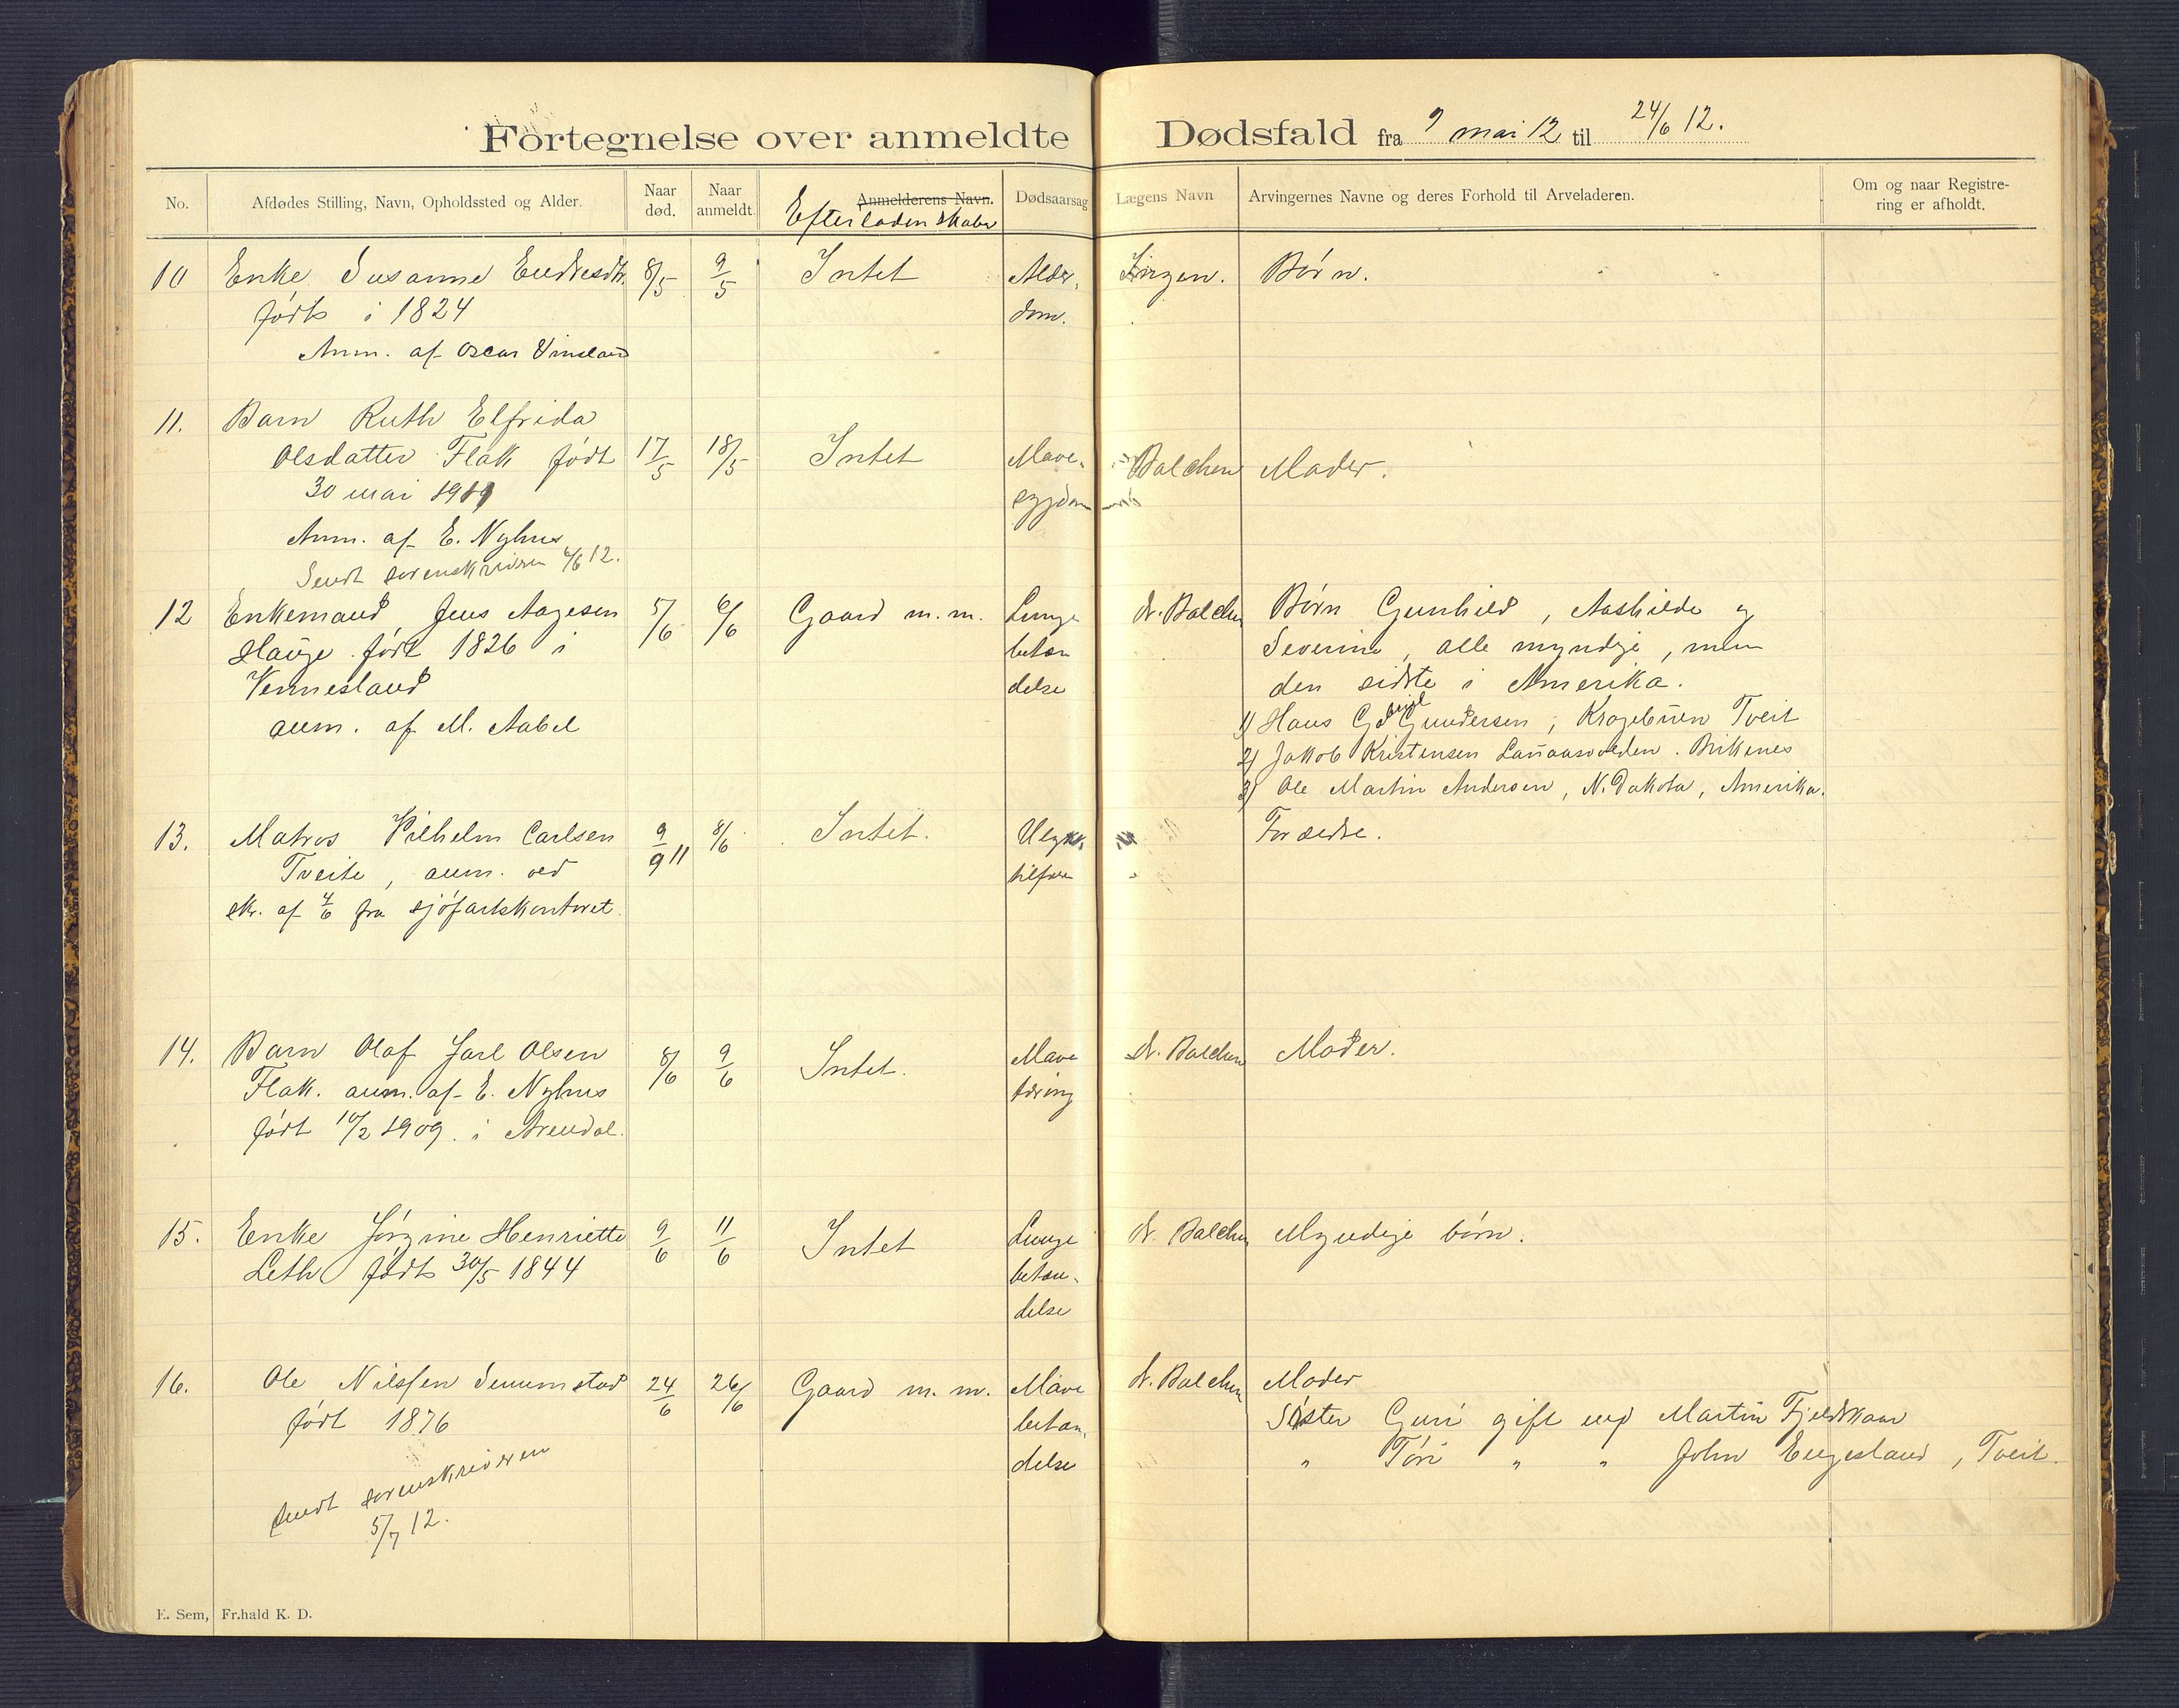 Fortegnelse over anmeldte Dødsfald fra 9 mai 12 til 24/6 12.
No. Afdødes Stilling, Navn, Opholdssted og Alder. Naar død. Naar anmeldt. Anmelderens Navn. Efterladenskabe Dødsaarsag Lægens Navn Arvingernes Navne og deres Forhold til Arveladeren. Om og naar Registrering er afholdt.
10 Enke Susanne Endresdtr. 8/5 9/5 Intet Alder- Ingen. Børn.
født i 1824 dom.
Anm. af Oscar Vinsland
11. Barn Ruth Elfrida
Olsdatter Flak født 17/5 18/5 Intet Mave- Balchen Moder.
30 mai 1911 sygdom
Anm. af E. Nyhus
Sendt sorenskriveren 4/6 12.
12 Enkemand Jens Aagesen 5/6 6/6 Gaard m.m. Lunge dr. Balchen Børn Gunhild, Aashilde og
Hauge født 1826 i betæn Severine, alle myndige, men
Vennesland delse den sidste i Amerika.
anm. af M. Aabel 1) Hans Gundersen, Kragebuen Tveit
2) Jakob Kristensen Birkenes
3) Ole Martin Andersen, N. Dakota, Amerika.
13. Matros Vilhelm Carlsen 9/9 11 8/6 Intet. Ulyk. Forældre.
Tveite, anm. ved tilfælde
skr. af 4/6 fra sjøfartskontoret.
14. Barn Olaf Jarl Olsen 8/6 9/6 Intet. Mave dr. Balchen Moder.
Flak. anm. af E. Nyhus tæring
født 10/2 1909 i Arendal.
15. Enke Jørgine Henriette 9/6 11/6 Intet Lunge dr. Balchen Myndige børn.
Leth født 30/5 1844 betæn-
delse
16. Ole Nilsen Senumstad 24/6 26/6 Gaard m.m. Mave dr. Balchen Moder
født 1876 betæn. Søster Guri gift med Martin Fjeldskaar
sendt sorenskriveren delse " Tøri " " John Engesland, Tveit.
5/7 12.
E. Sem, Fr.hald K. D.